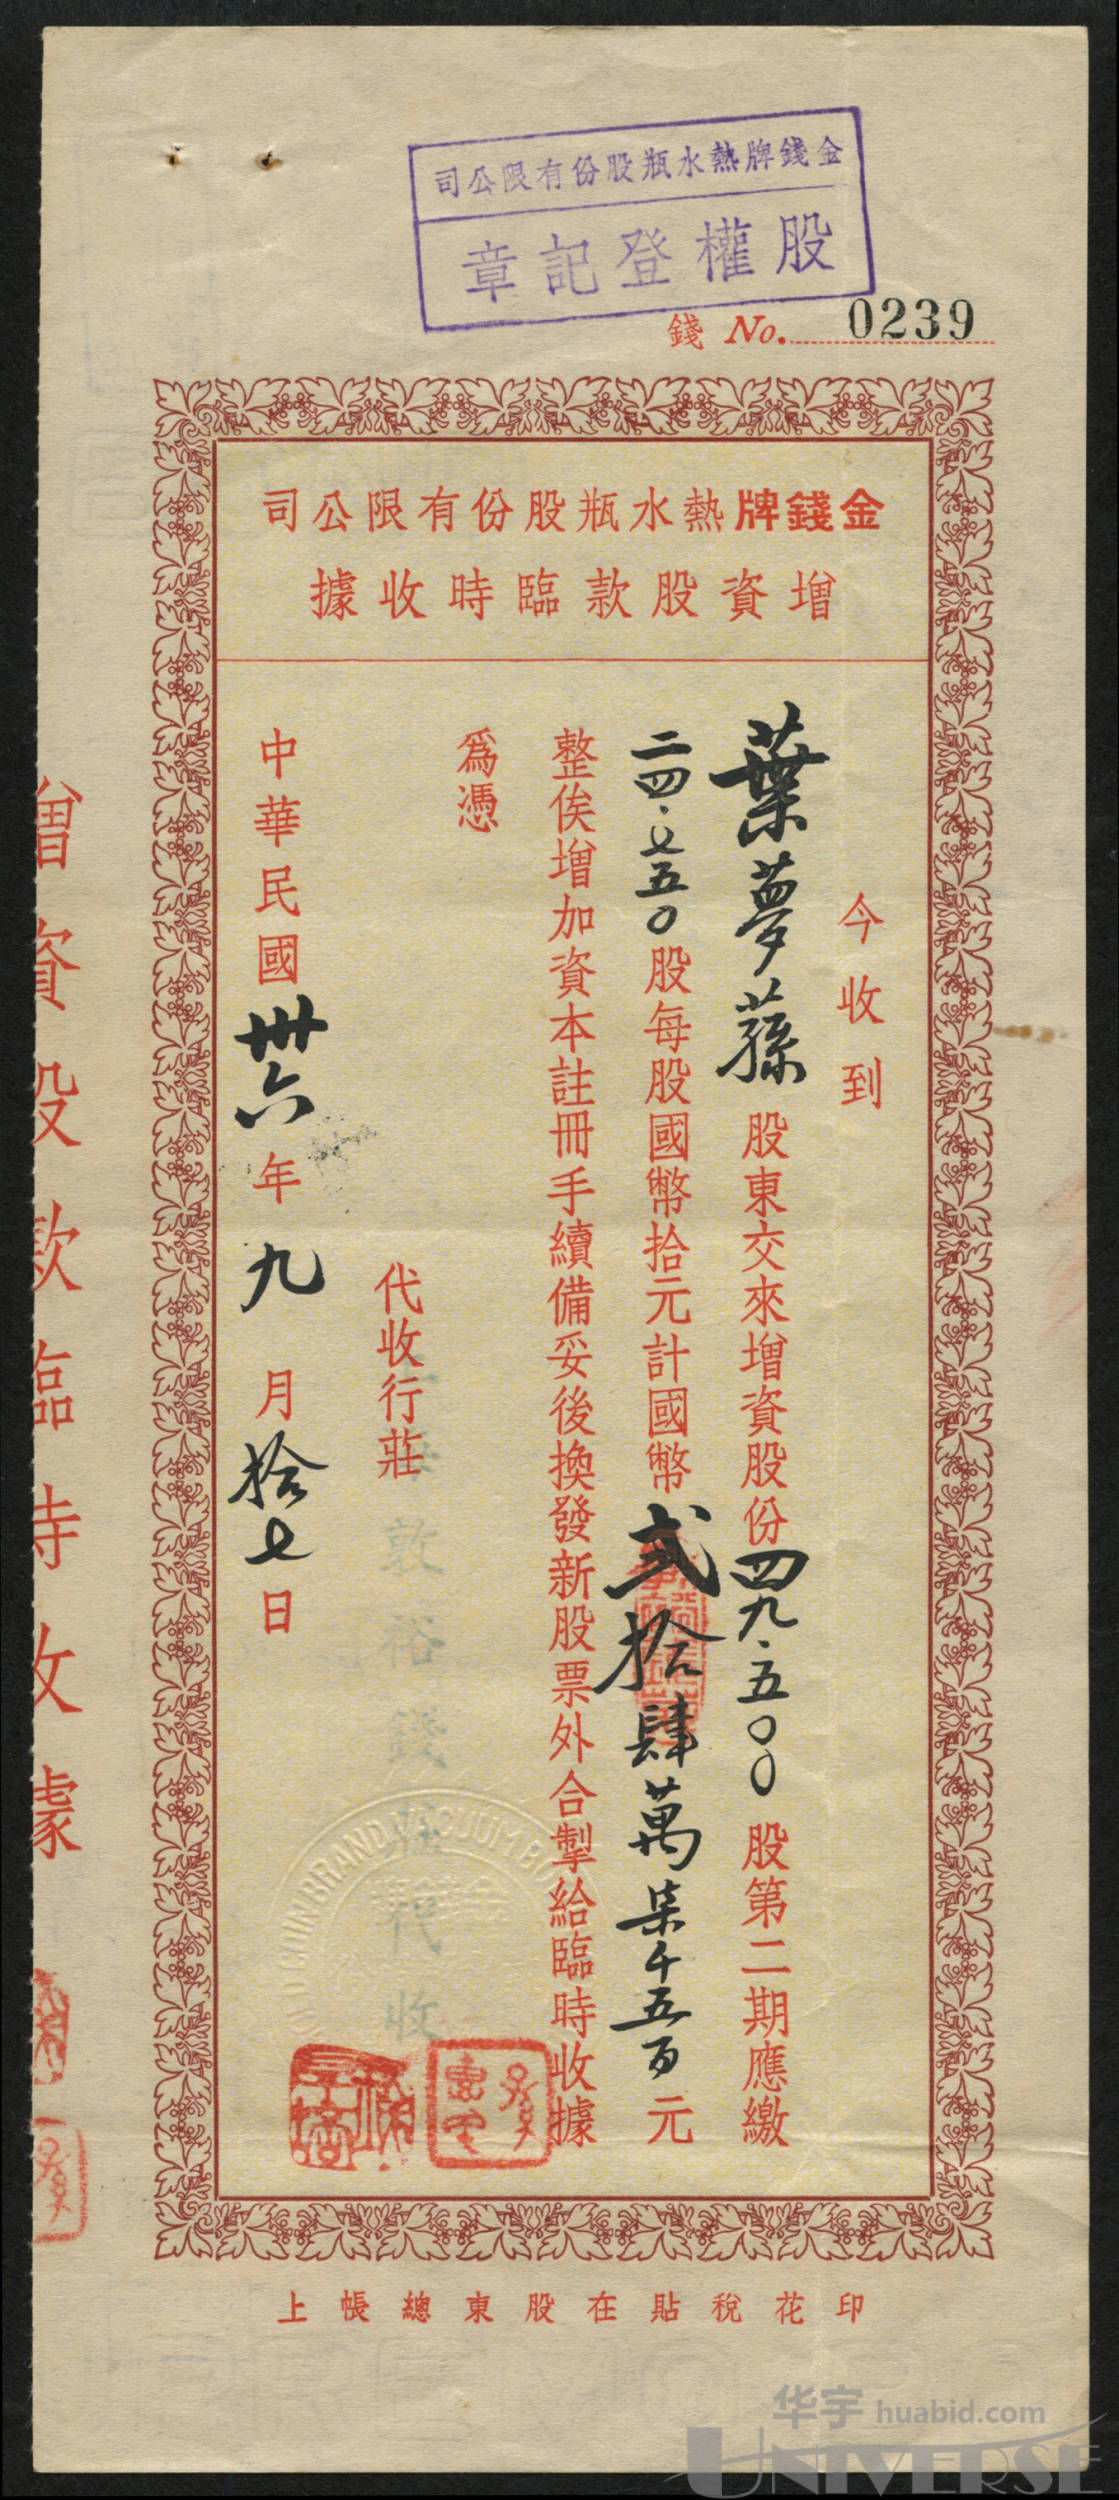 金錢牌熱水瓶股份有限公司
股權登記章
錢 No. 0239
金錢牌熱水瓶股份有限公司
增資股款臨時收據
今收到
葉夢蓀 股東交來增資股份四九·五〇〇股第二期應繳
二四·七五〇股每股國幣拾元計國幣貳拾肆萬柒千五百元
整俟增加資本註冊手續備妥後換發新股票外合掣給臨時收據
為憑
代收行莊
上海敦裕錢莊代收
中華民國卅六年九月拾七日
增資股款臨時收據
印花稅貼在股東總帳上
华宇 huabid.com
UNIVERSE